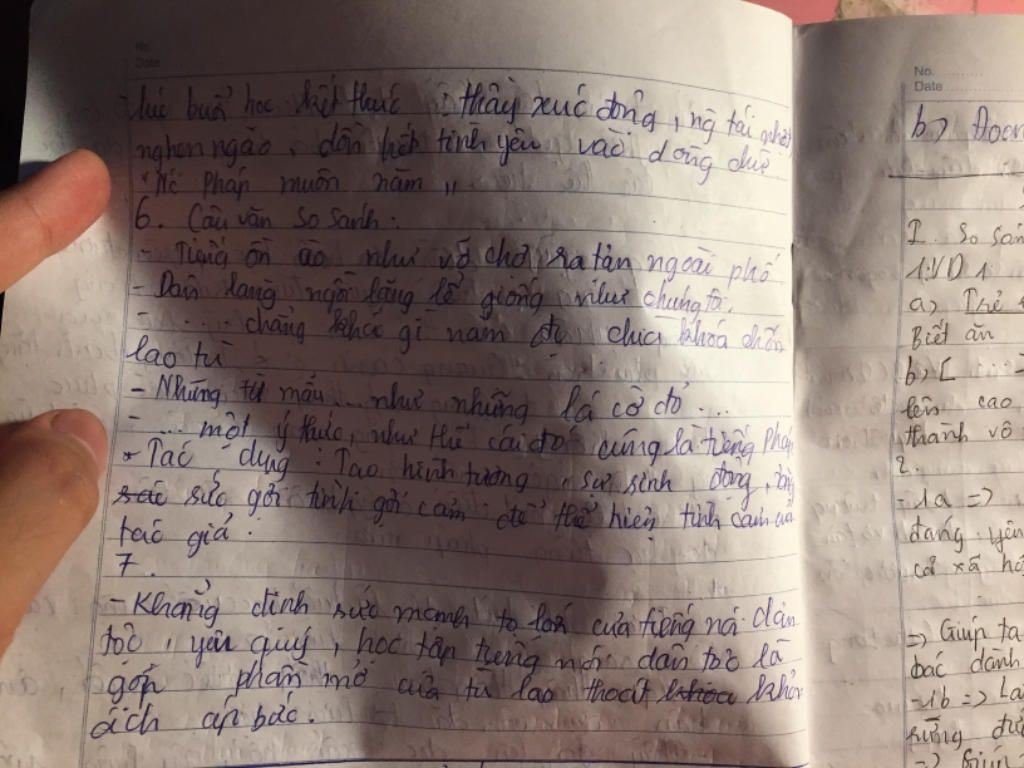 No.
Date
lúc buổi học kết thúc : thầy xúc động, ng tái nhợt,
nghẹn ngào, dồn hết tình yêu vào dòng chữ
"Nc Pháp muôn năm"
6. Câu văn so sánh:
- Tiếng ồn ào như vỡ chợ ra tận ngoài phố
- Dân làng ngồi lặng lẽ giống như chúng tôi.
- ... chẳng khác gì nắm đc chìa khóa chốn
lao tù
- Những tờ mẫu ... như những lá cờ đỏ ...
- ... một ý thức, như thể cái đó cũng là tiếng Pháp
* Tác dụng : Tạo hình tượng, sự sinh động, tăng
sức gợi hình gợi cảm để thể hiện tình cảm của
tác giả.
7.
- Khẳng định sức mạnh to lớn của tiếng nói dân
tộc, yêu quý, học tập tiếng nói dân tộc là
góp phần mở cửa tù lao thoát khỏi
ách áp bức.
No.
Date
b) Đoạn
I. So sán
1. VD 1
a) Trẻ
Biết ăn
b) [ ...
lên cao
thành vô
2.
- 1a =>
đáng yêu
cả xã hộ
=> Giúp ta
bác dành
- 1b =>
rừng đư
=> Giúp